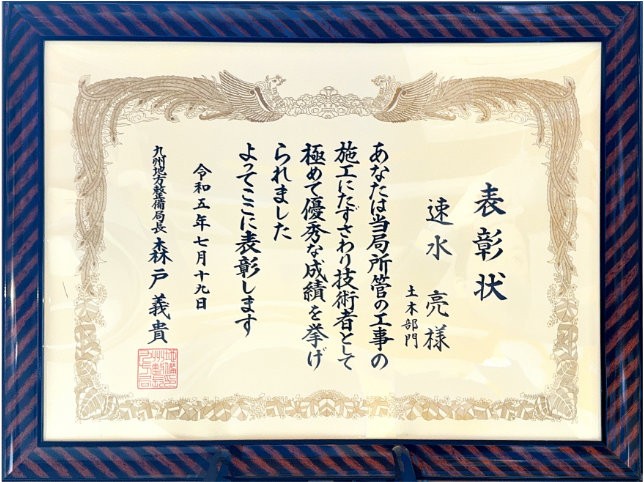 表彰状
速水 亮様
土木部門
あなたは当局所管の工事の
施工にたずさわり技術者として
極めて優秀な成績を挙げ
られました
よってここに表彰します
令和五年七月十九日
九州地方整備局長 森戸義貴